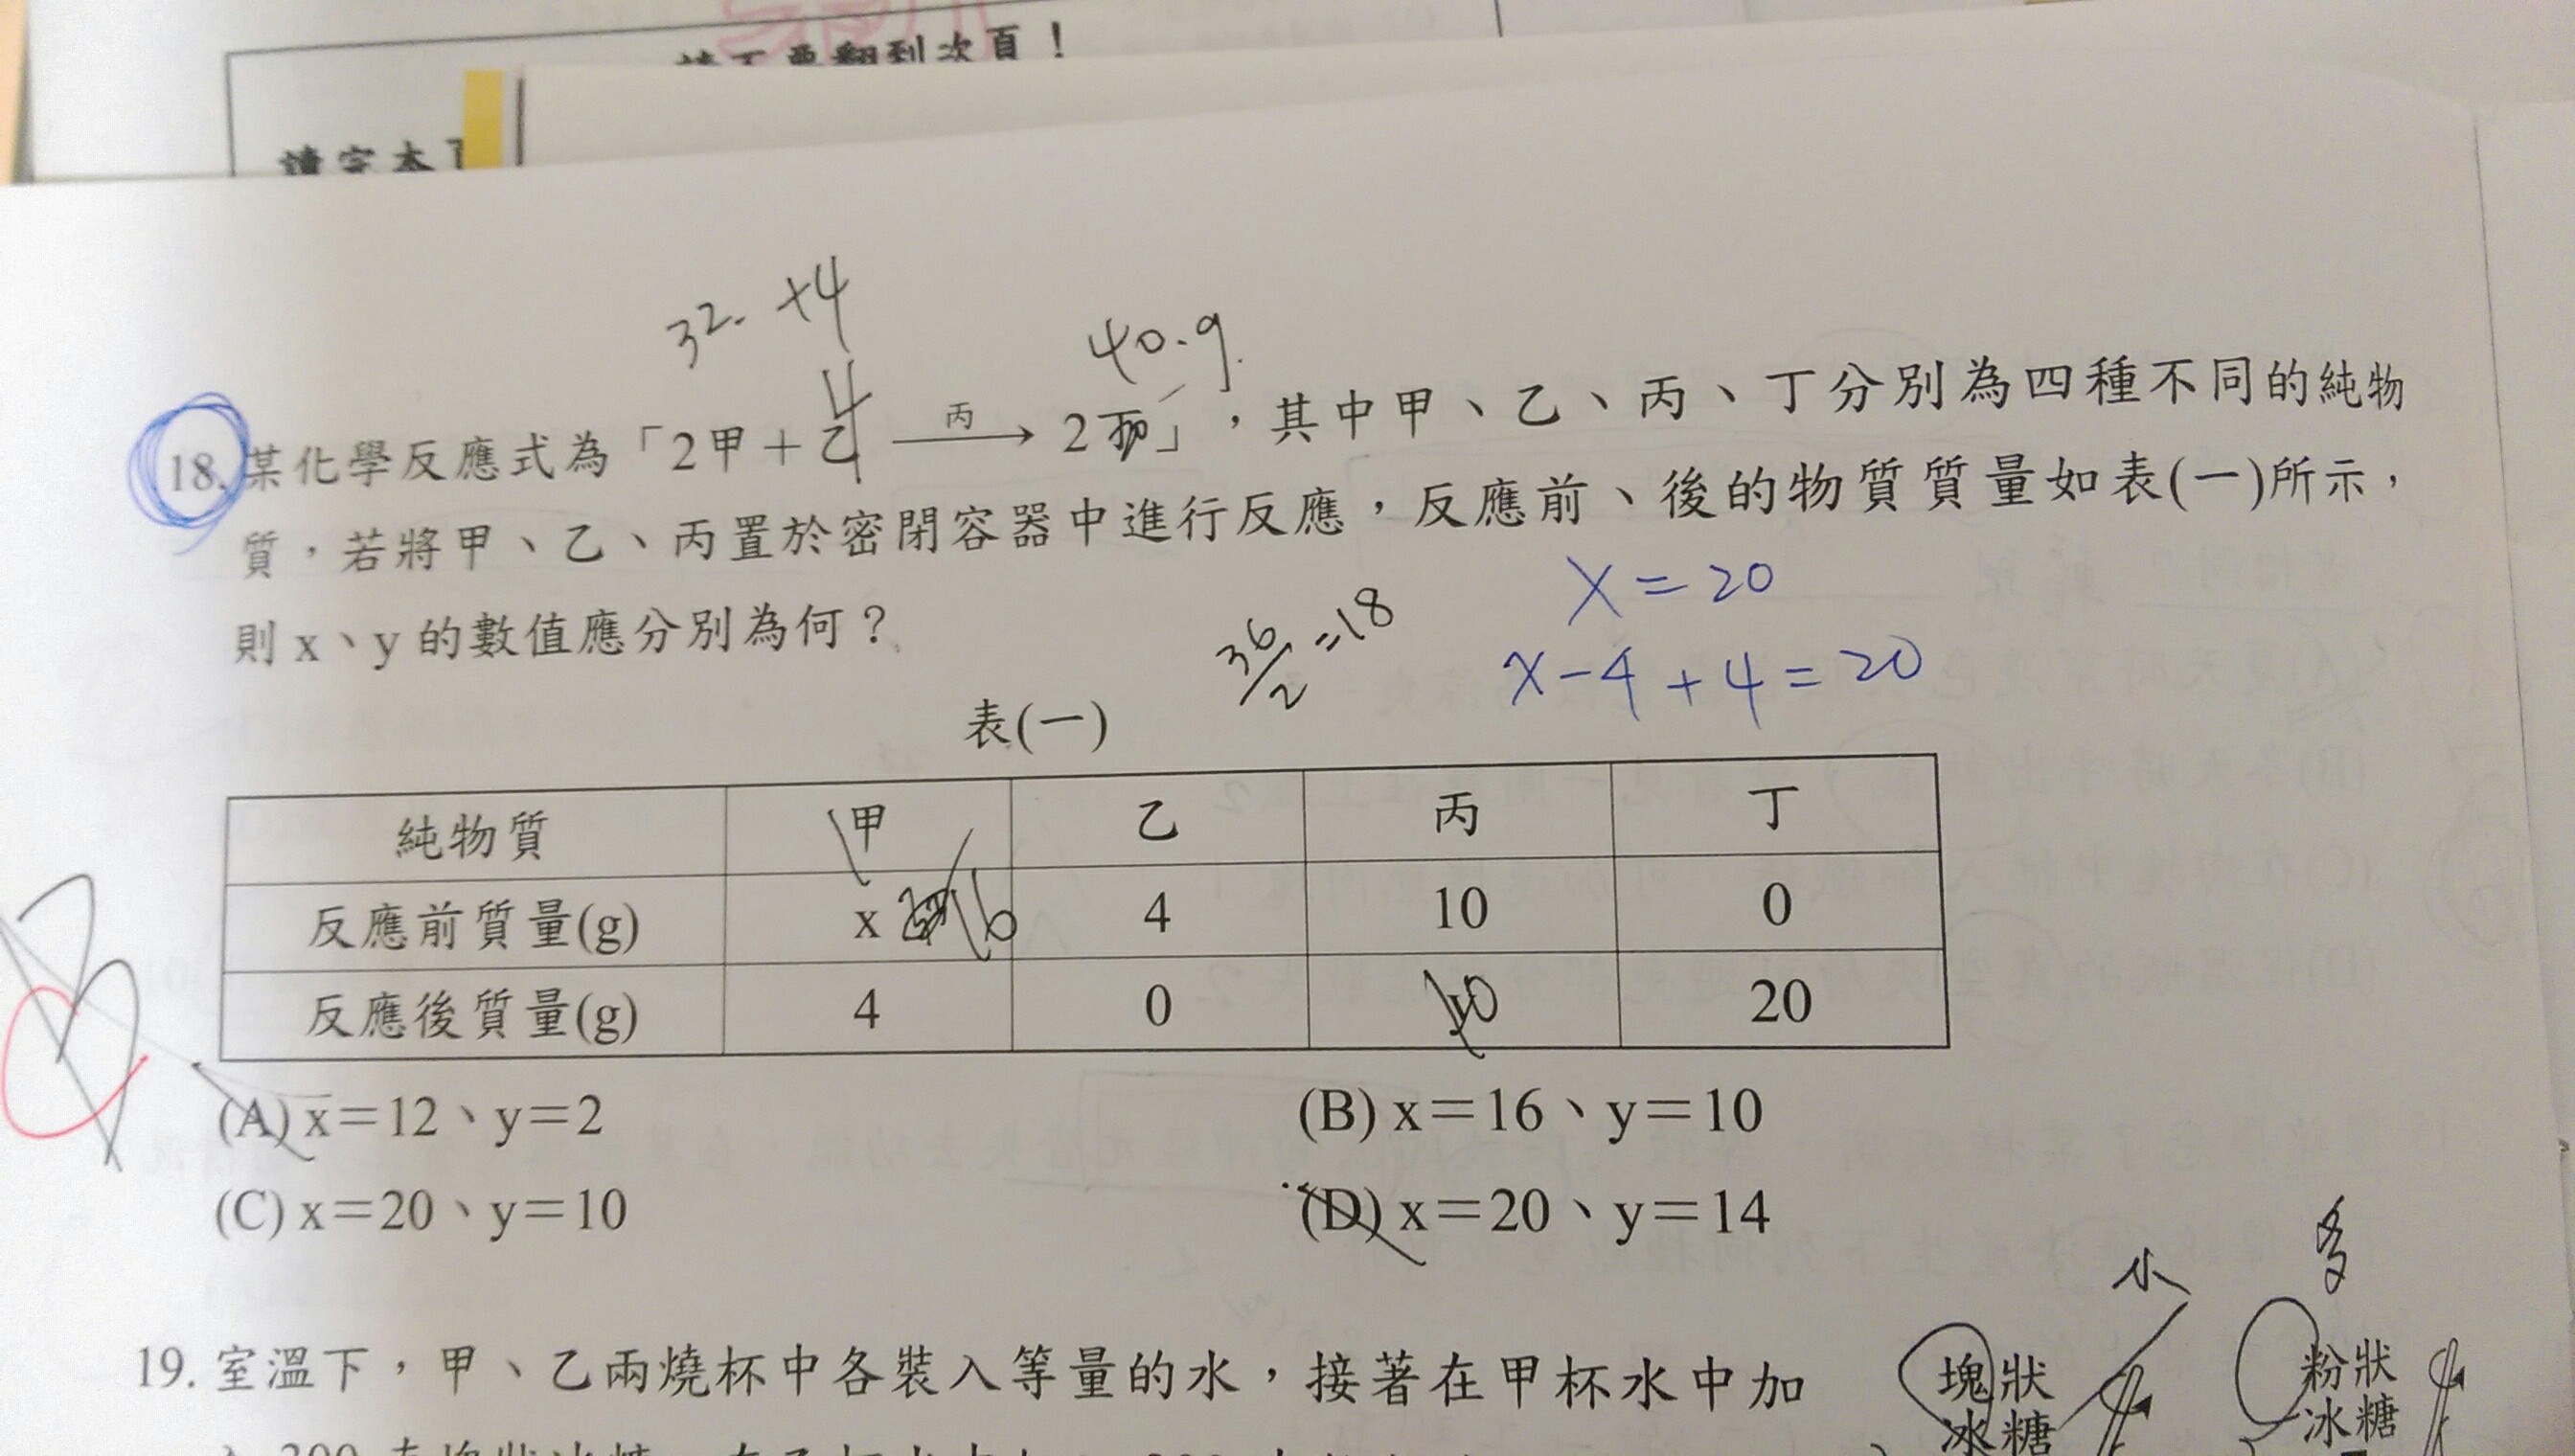 翻到次頁！
請完本
32. +4
40.9
18. 某化學反應式為「2甲＋乙 丙→ 2丁」，其中甲、乙、丙、丁分別為四種不同的純物
質，若將甲、乙、丙置於密閉容器中進行反應，反應前、後的物質質量如表(一)所示，
則 x、y 的數值應分別為何？
x = 20
36/2 = 18
x - 4 + 4 = 20
表(一)
純物質 甲 乙 丙 丁
反應前質量(g) x 16 4 10 0
反應後質量(g) 4 0 y 20
(A) x＝12、y＝2 (B) x＝16、y＝10
(C) x＝20、y＝10 (D) x＝20、y＝14
小 多
19. 室溫下，甲、乙兩燒杯中各裝入等量的水，接著在甲杯水中加
塊狀 粉狀
冰糖 冰糖